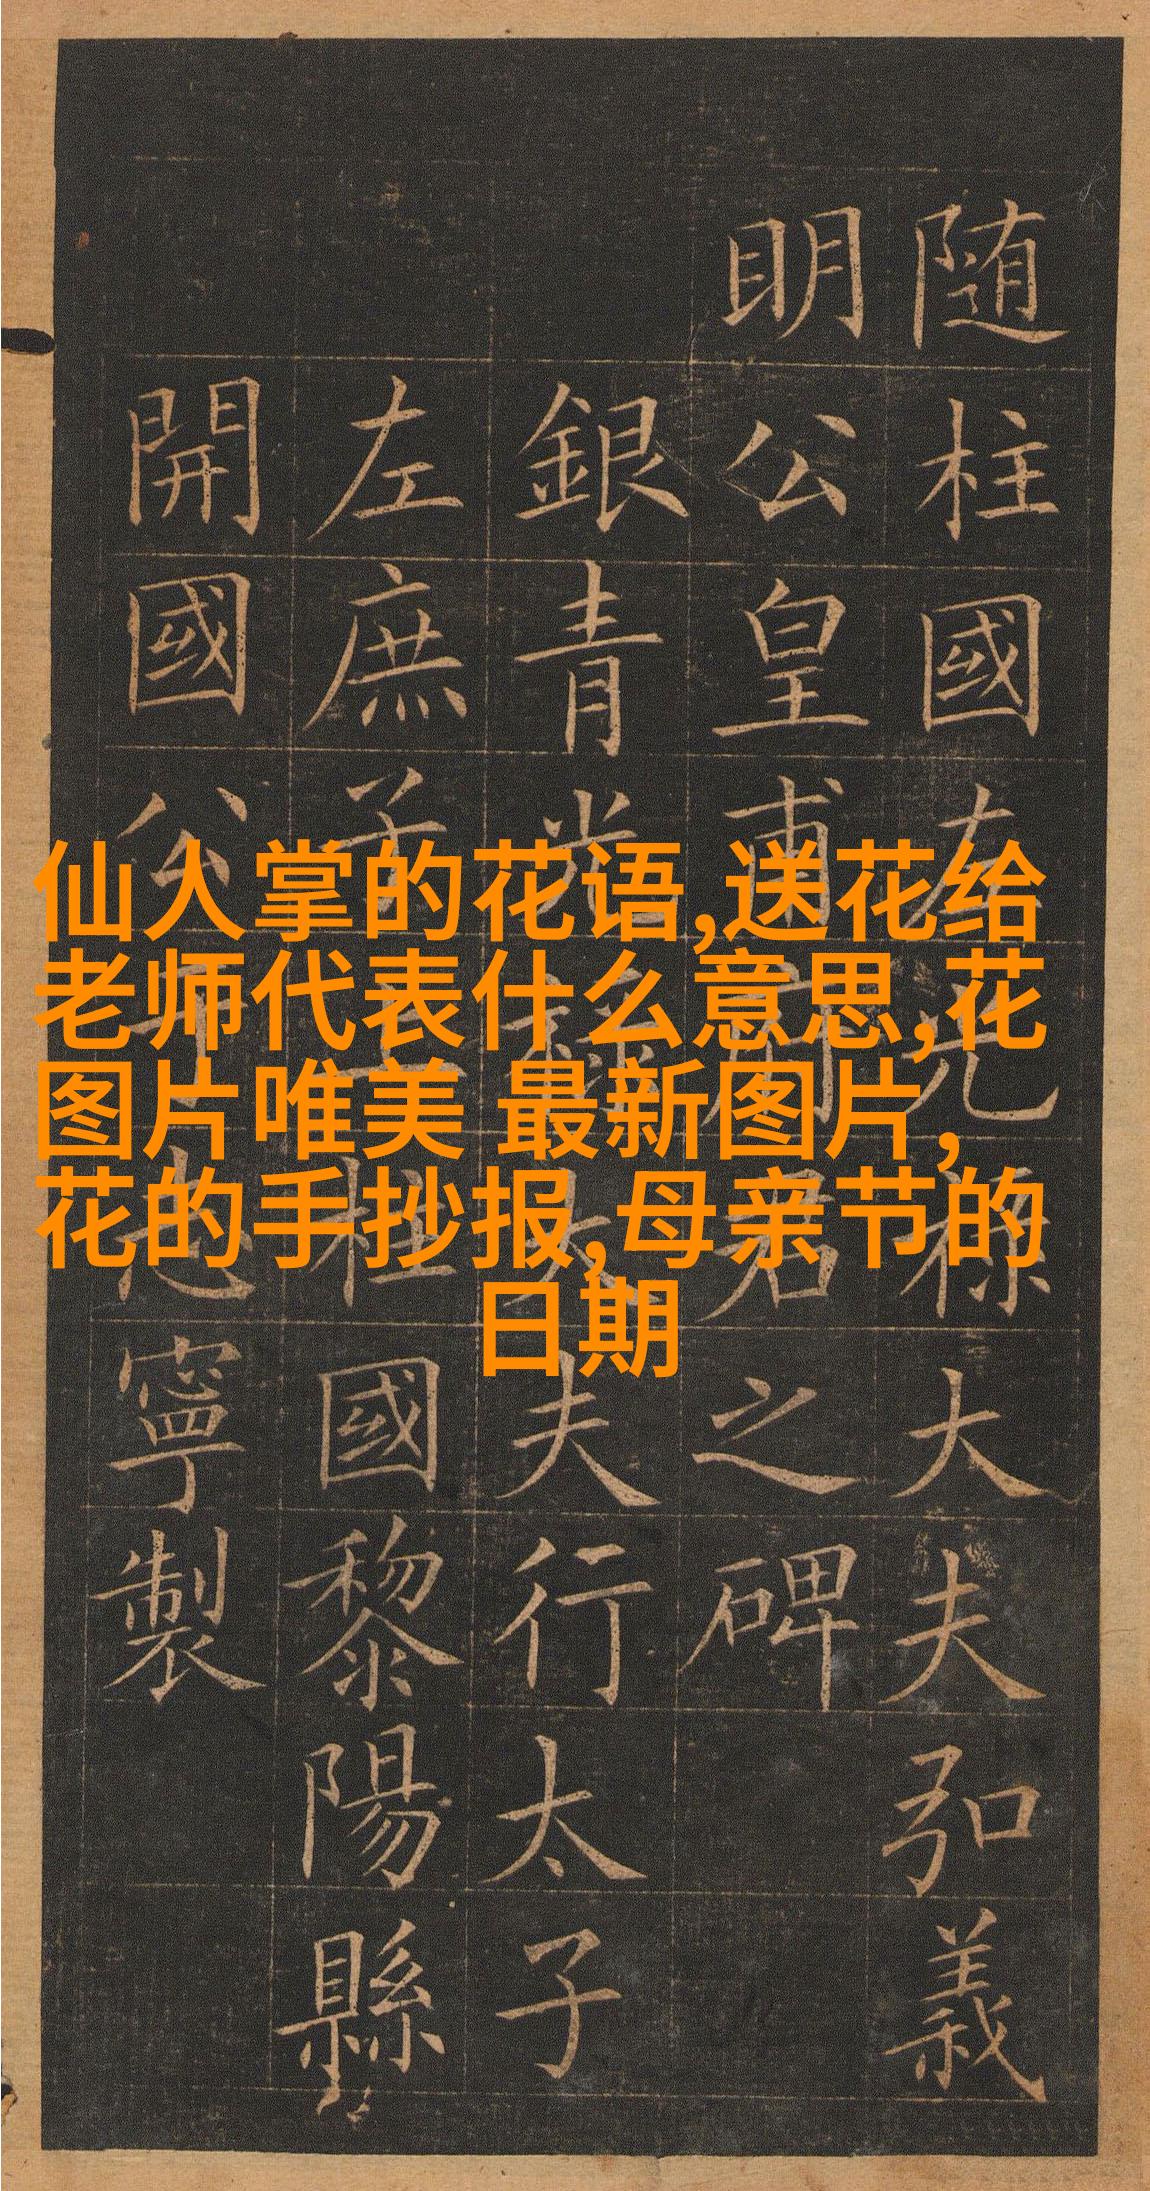 仙人掌的花语,送花给
老师代表什么意思,花
图片唯美 最新图片,
花的手抄报,母亲节的
日期
随柱國左光祿大夫弘義
明公皇甫府君之碑
銀青光祿大夫行太子
左庶子上柱國黎陽縣
開國公于志寧製